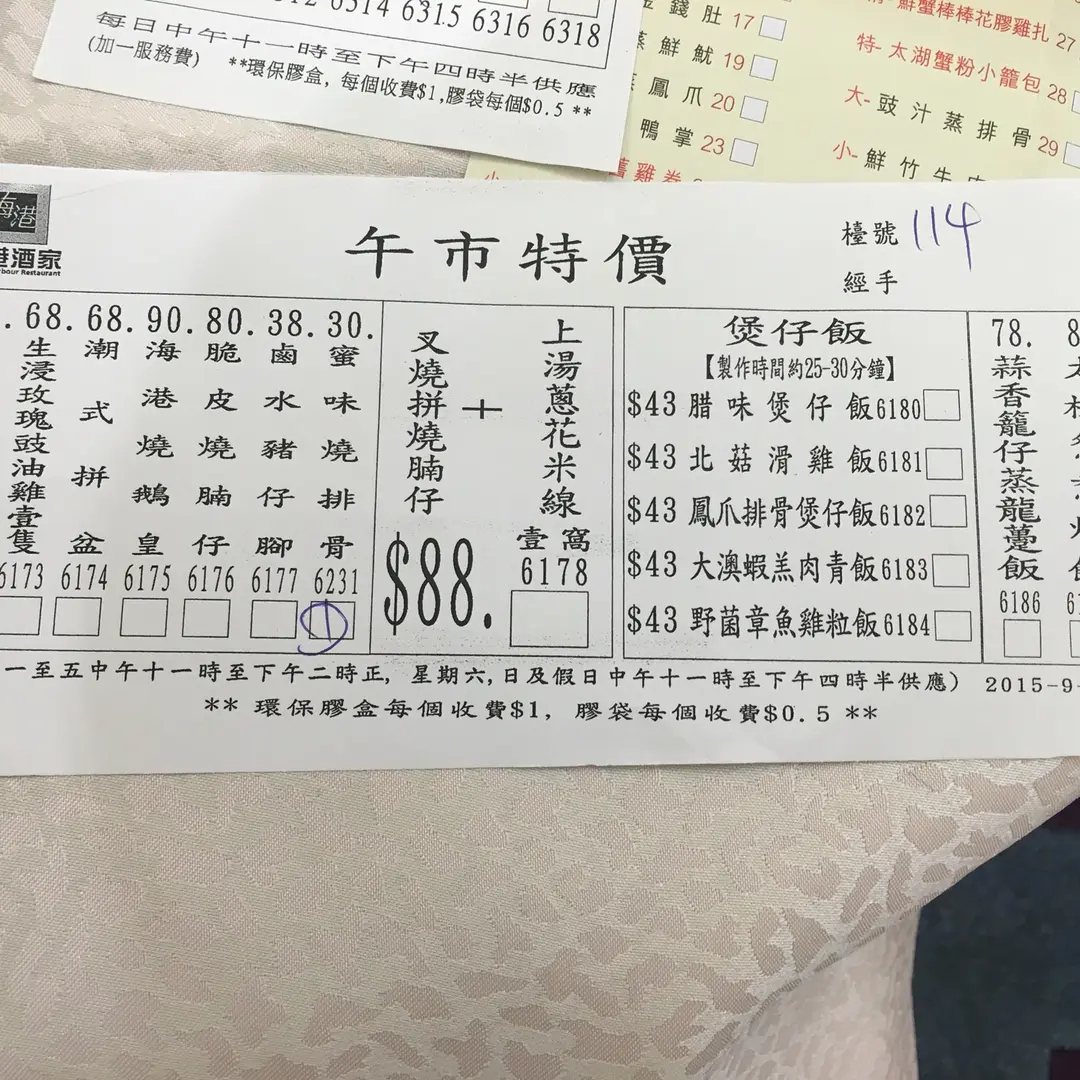 6314 6315 6316 6318
每日中午十一時至下午四時半供應
(加一服務費) **環保膠盒, 每個收費$1,膠袋每個$0.5 **
金錢肚 17
蒸鮮魷 19
鳳爪 20
鴨掌 23
鮮蟹棒棒花膠雞扎 27
特- 太湖蟹粉小籠包 28
大- 豉汁蒸排骨 29
小- 鮮竹牛肉
海港
港酒家
bour Restaurant
午市特價
檯號 114
經手
68. 68. 90. 80. 38. 30.
生浸玫瑰豉油雞壹隻
6173
潮式拼盆
6174
海港燒鵝皇
6175
脆皮燒腩仔
6176
鹵水豬仔腳
6177
蜜味燒排骨
6231
1
叉燒拼燒腩仔
+
上湯蔥花米線
壹窩
$88.
6178
煲仔飯
【製作時間約25-30分鐘】
$43 腊味煲仔飯 6180
$43 北菇滑雞飯 6181
$43 鳳爪排骨煲仔飯 6182
$43 大澳蝦羔肉青飯 6183
$43 野菌章魚雞粒飯 6184
78.
蒜香籠仔蒸龍躉飯
6186
一至五中午十一時至下午二時正, 星期六,日及假日中午十一時至下午四時半供應) 2015-9-
** 環保膠盒每個收費$1, 膠袋每個收費$0.5 **